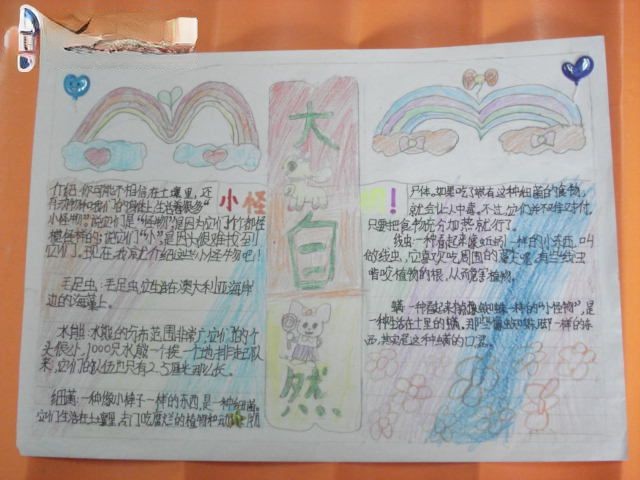 大自然
小怪
!
介绍:你可能不相信在土壤里,还
有动物和我们的海洋上生活着很多“
小怪物”,说它们是“怪物”,是因为它们个个都怪
模怪样的;说它们“小”,是因为很难找到
它们。现在,我就来介绍这些小怪物吧!
毛足虫:毛足虫,它生活在澳大利亚海岸
边的海藻上。
水熊:水熊的分布范围非常广,它们的个
头很小,1000只水熊一个挨一个地排起队
来,它们的队伍也只有2.5厘米那么长。
细菌:一种像小棒子一样的东西,是一种细菌。
它们生活在土壤里,专门吃腐烂的植物和动物
尸体。如果吃了带有这种细菌的食物,
就会让人中毒。不过,它们并不难对付,
只要把食物充分加热就行了。
线虫:一种看起来像蚯蚓一样的小东西,叫
做线虫,它喜欢吃周围的真菌,有些线虫
啃咬植物的根,从而危害植物。
螨:一种看起来稍像蜘蛛一样的“小怪物”,是
一种生活在土里的螨。那些像蜘蛛脚一样的东
西,其实是这种螨的口器。